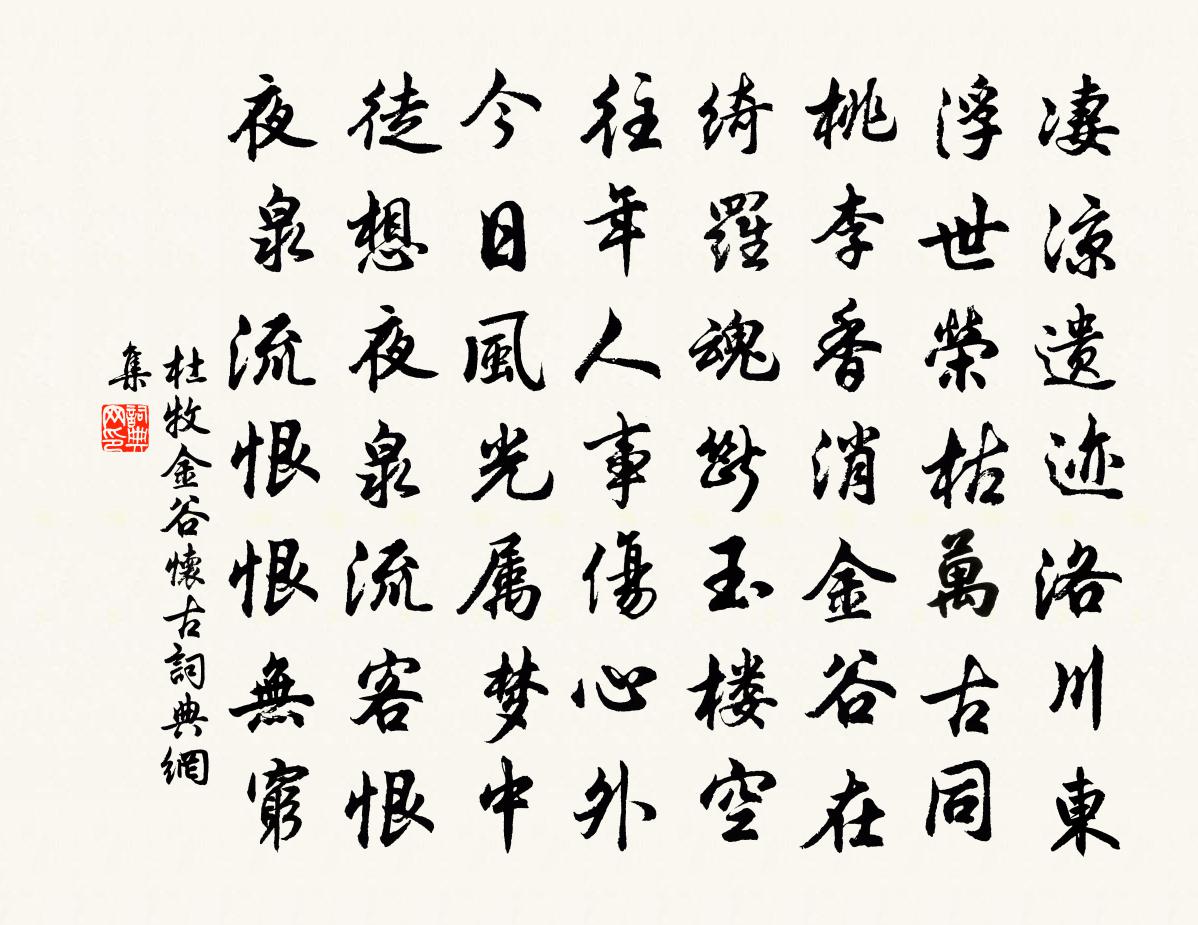 凄涼遺迹洛川東
浮世榮枯萬古同
桃李香消金谷在
綺羅魂斷玉楼空
往年人事傷心外
今日風光属梦中
徒想夜泉流客恨
夜泉流恨恨無窮
杜牧金谷懷古詞典網
集
詞典
网印